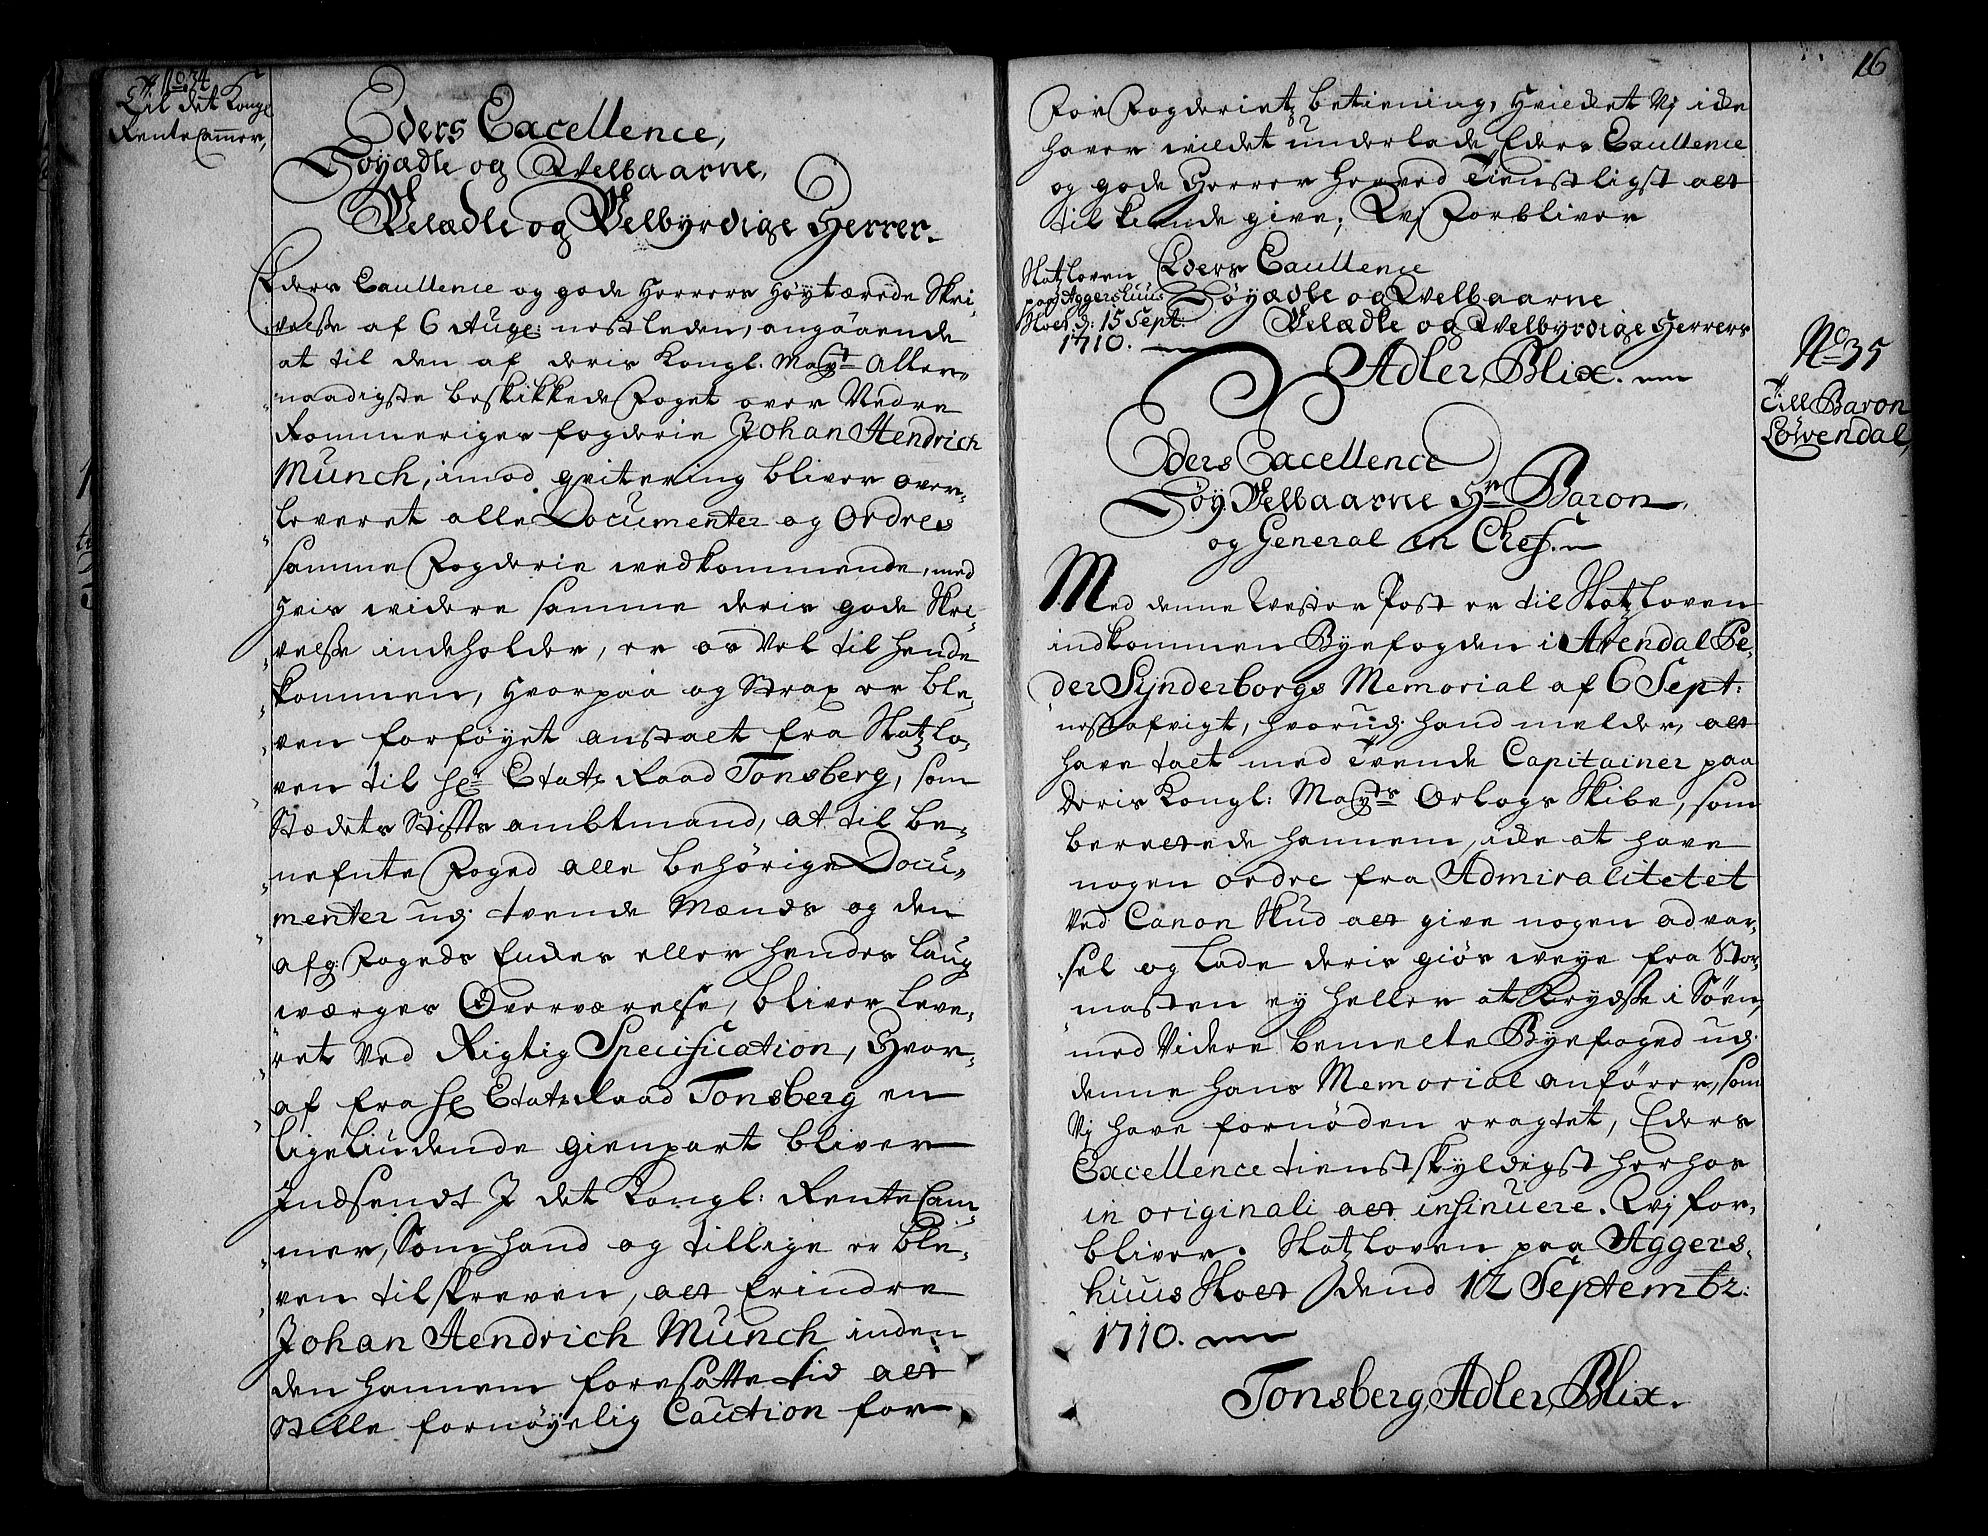 No 34
Til det Kongl
Rente Cammer,
Eders Excellence,
Höyædle og Velbaarne,
Velædle og Velbyrdige Herrer.
Eders Excellence og gode Herrers höytærede Skri-
velße af 6 Aug: nestleden, angaaende
at til den af deris Kongl. Mayst Aller-
naadigste beskikkede Foget over Nedre
Rommeriges fogderie Johan Hendrich
Munch, imod qvitering bliver over-
leveret alle Documenter og Ordres
samme Fogderie vedkommende, med
hvis widere samme deris gode Skri-
velße indeholder, er os Vel til hende
kommen, hvorpaa og strax er ble-
ven forföyet anstalt fra Slotzlo-
ven til Hr Etats Raad Tonsberg, som
Stædets Stiftsambtmand, at til be-
nefnte Foged alle behörige Docu-
menter ud tvende Mænds og den
afg: Fogeds Enckes eller hendes laug
wærges Overværelse, bliver leve-
ret Ved Rigtig Specification, Hvor-
af fra H Etats Raad Tonsberg en
ligeliudende gienpart bliver
Indsendt I det Kongl: Rente Cam-
mer, Som hand og tillige er ble-
ven tilskreven, att Erindre
Johan Hendrich Munch inden
den hannem foresatte tid att
stille fornöyelig Caution for
16
For Fogderietz betiening, hvilcket Vj icke
haver wildet underlade Eders Excellence
og gode Herrer herved tienstligst att
tilkiende give; Wj Forbliver
Slotzloven
paa Aggershuus
Slott d: 15 Sept:
1710.
Eders Excellence
Höyædle og Velbaarne
Velædle og Velbyrdige Herrers
Adler, Blix.
No 35
Till Baron
Löwendal,
Eders Excellence
Höy Velbaarne Hr Baron,
og General en Chef.
Med denne Vester Post er til Slotzloven
indkommen Byefogden i Arendal Pe-
der Synderborgs Memorial af 6 Sept:
nestafvigt, hvorud hand melder, att
have talt med tvende Capitainer paa
Deris Kongl: Maysts Orlogs Skibe, som
berettede hannem, icke at have
nogen ordre fra Admiralitetet
Ved Canon Skud att give nogen advar-
sel og lade deris giös weye fra Stor-
masten ey heller at Krydße i Söen,
med Videre bemelte Byefoged ud
denne hans Memorial anförer, som
Vj have fornöden eragtet, Eders
Excellence tienstskyldigst herhos
in originali att insinuere. Wj for-
bliver. Slotzloven paa Aggers-
huus Slott dend 12 Septembr:
1710.
Tonsberg, Adler, Blix.